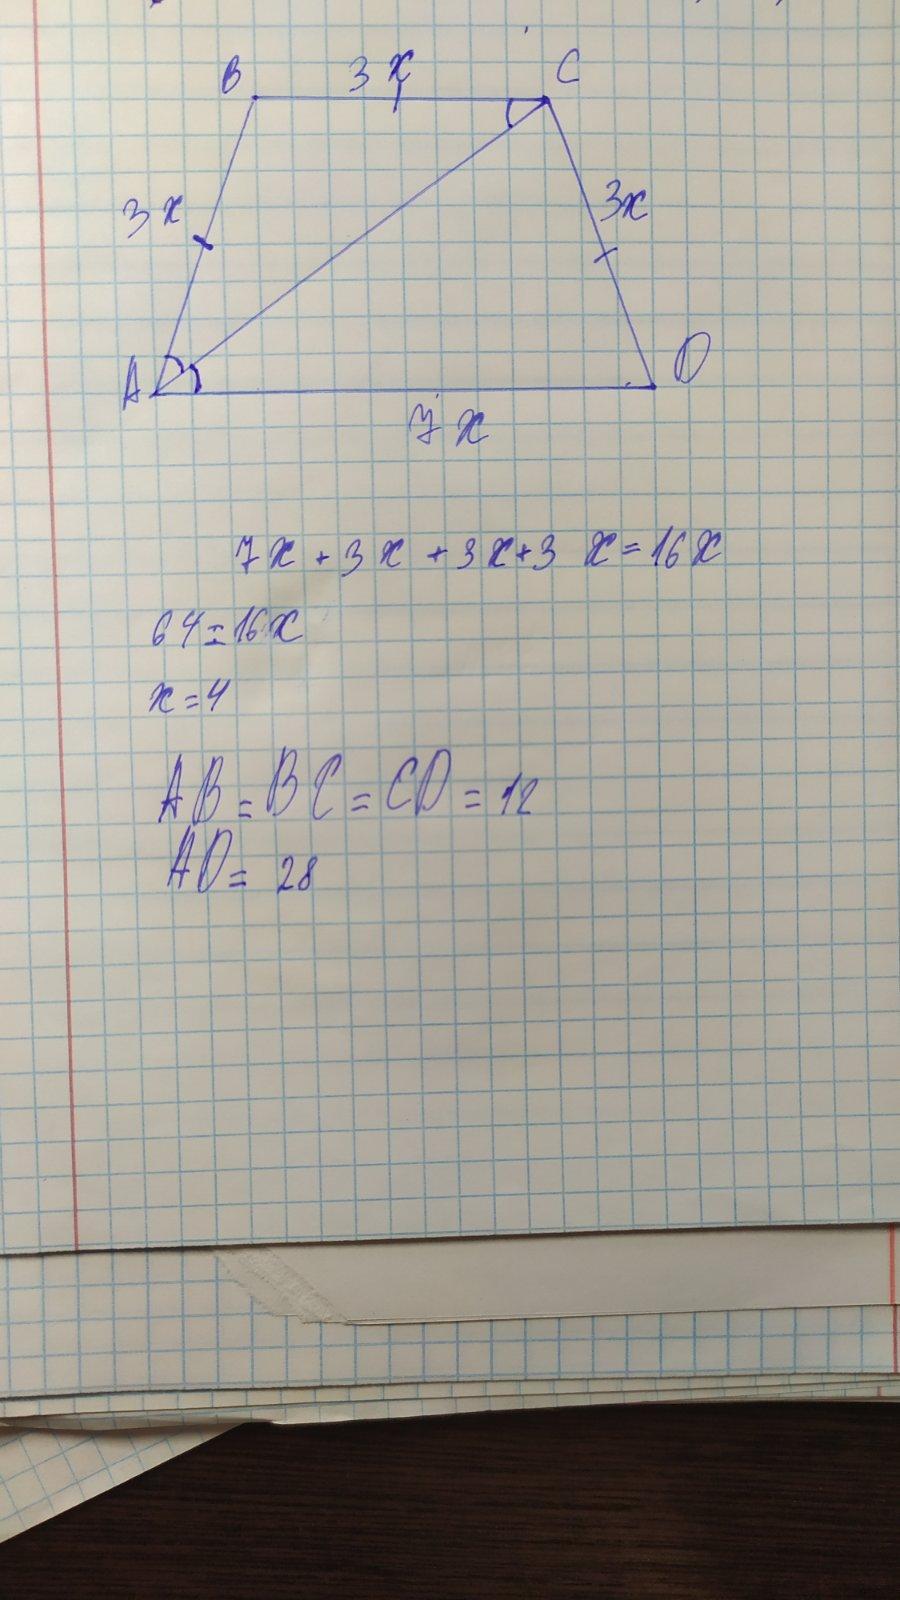 B 3 x C
3 x 3x
A D
7 x
7x + 3x + 3x+3 x = 16x
64=16x
x=4
AB=BC=CD=12
AD= 28